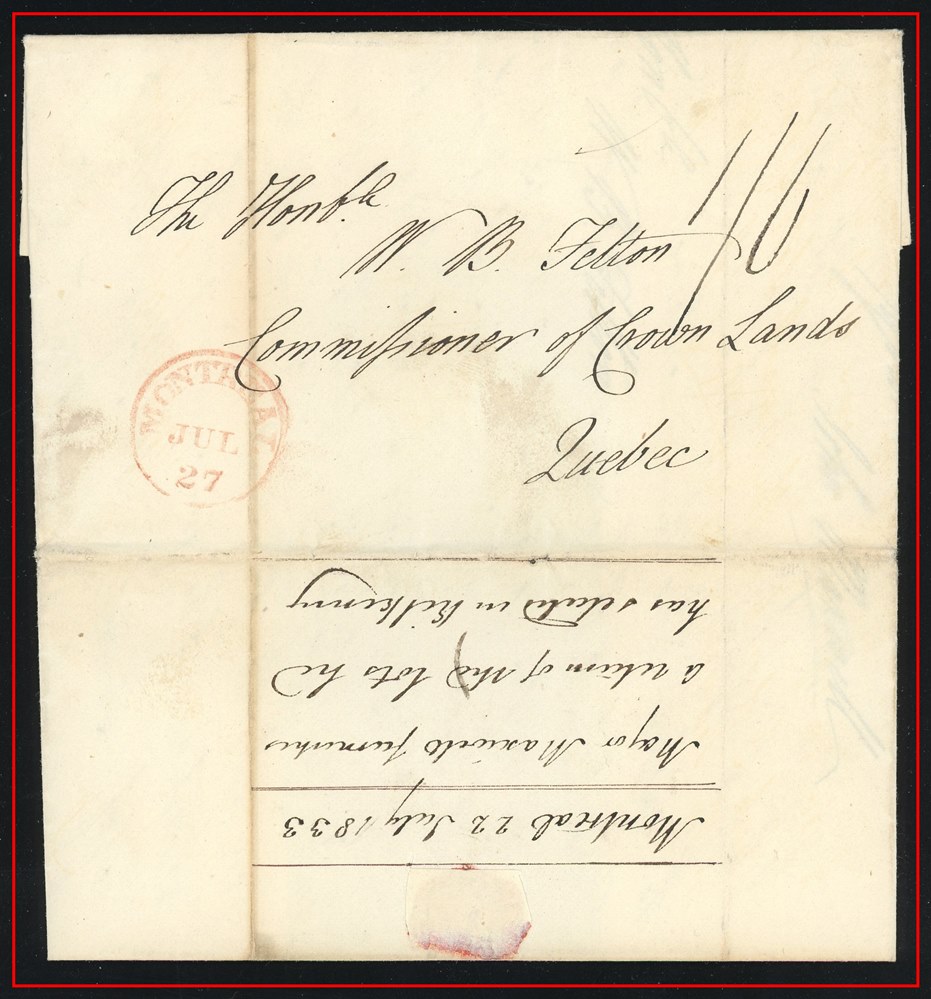 The Honble
W. B. Felton
Commissioner of Crown Lands
Quebec
1/6
MONTREAL
JUL
27
Montreal 22 July 1833
Major Maxwell furnishes
a return of the lots he
has selected in Kilkenny